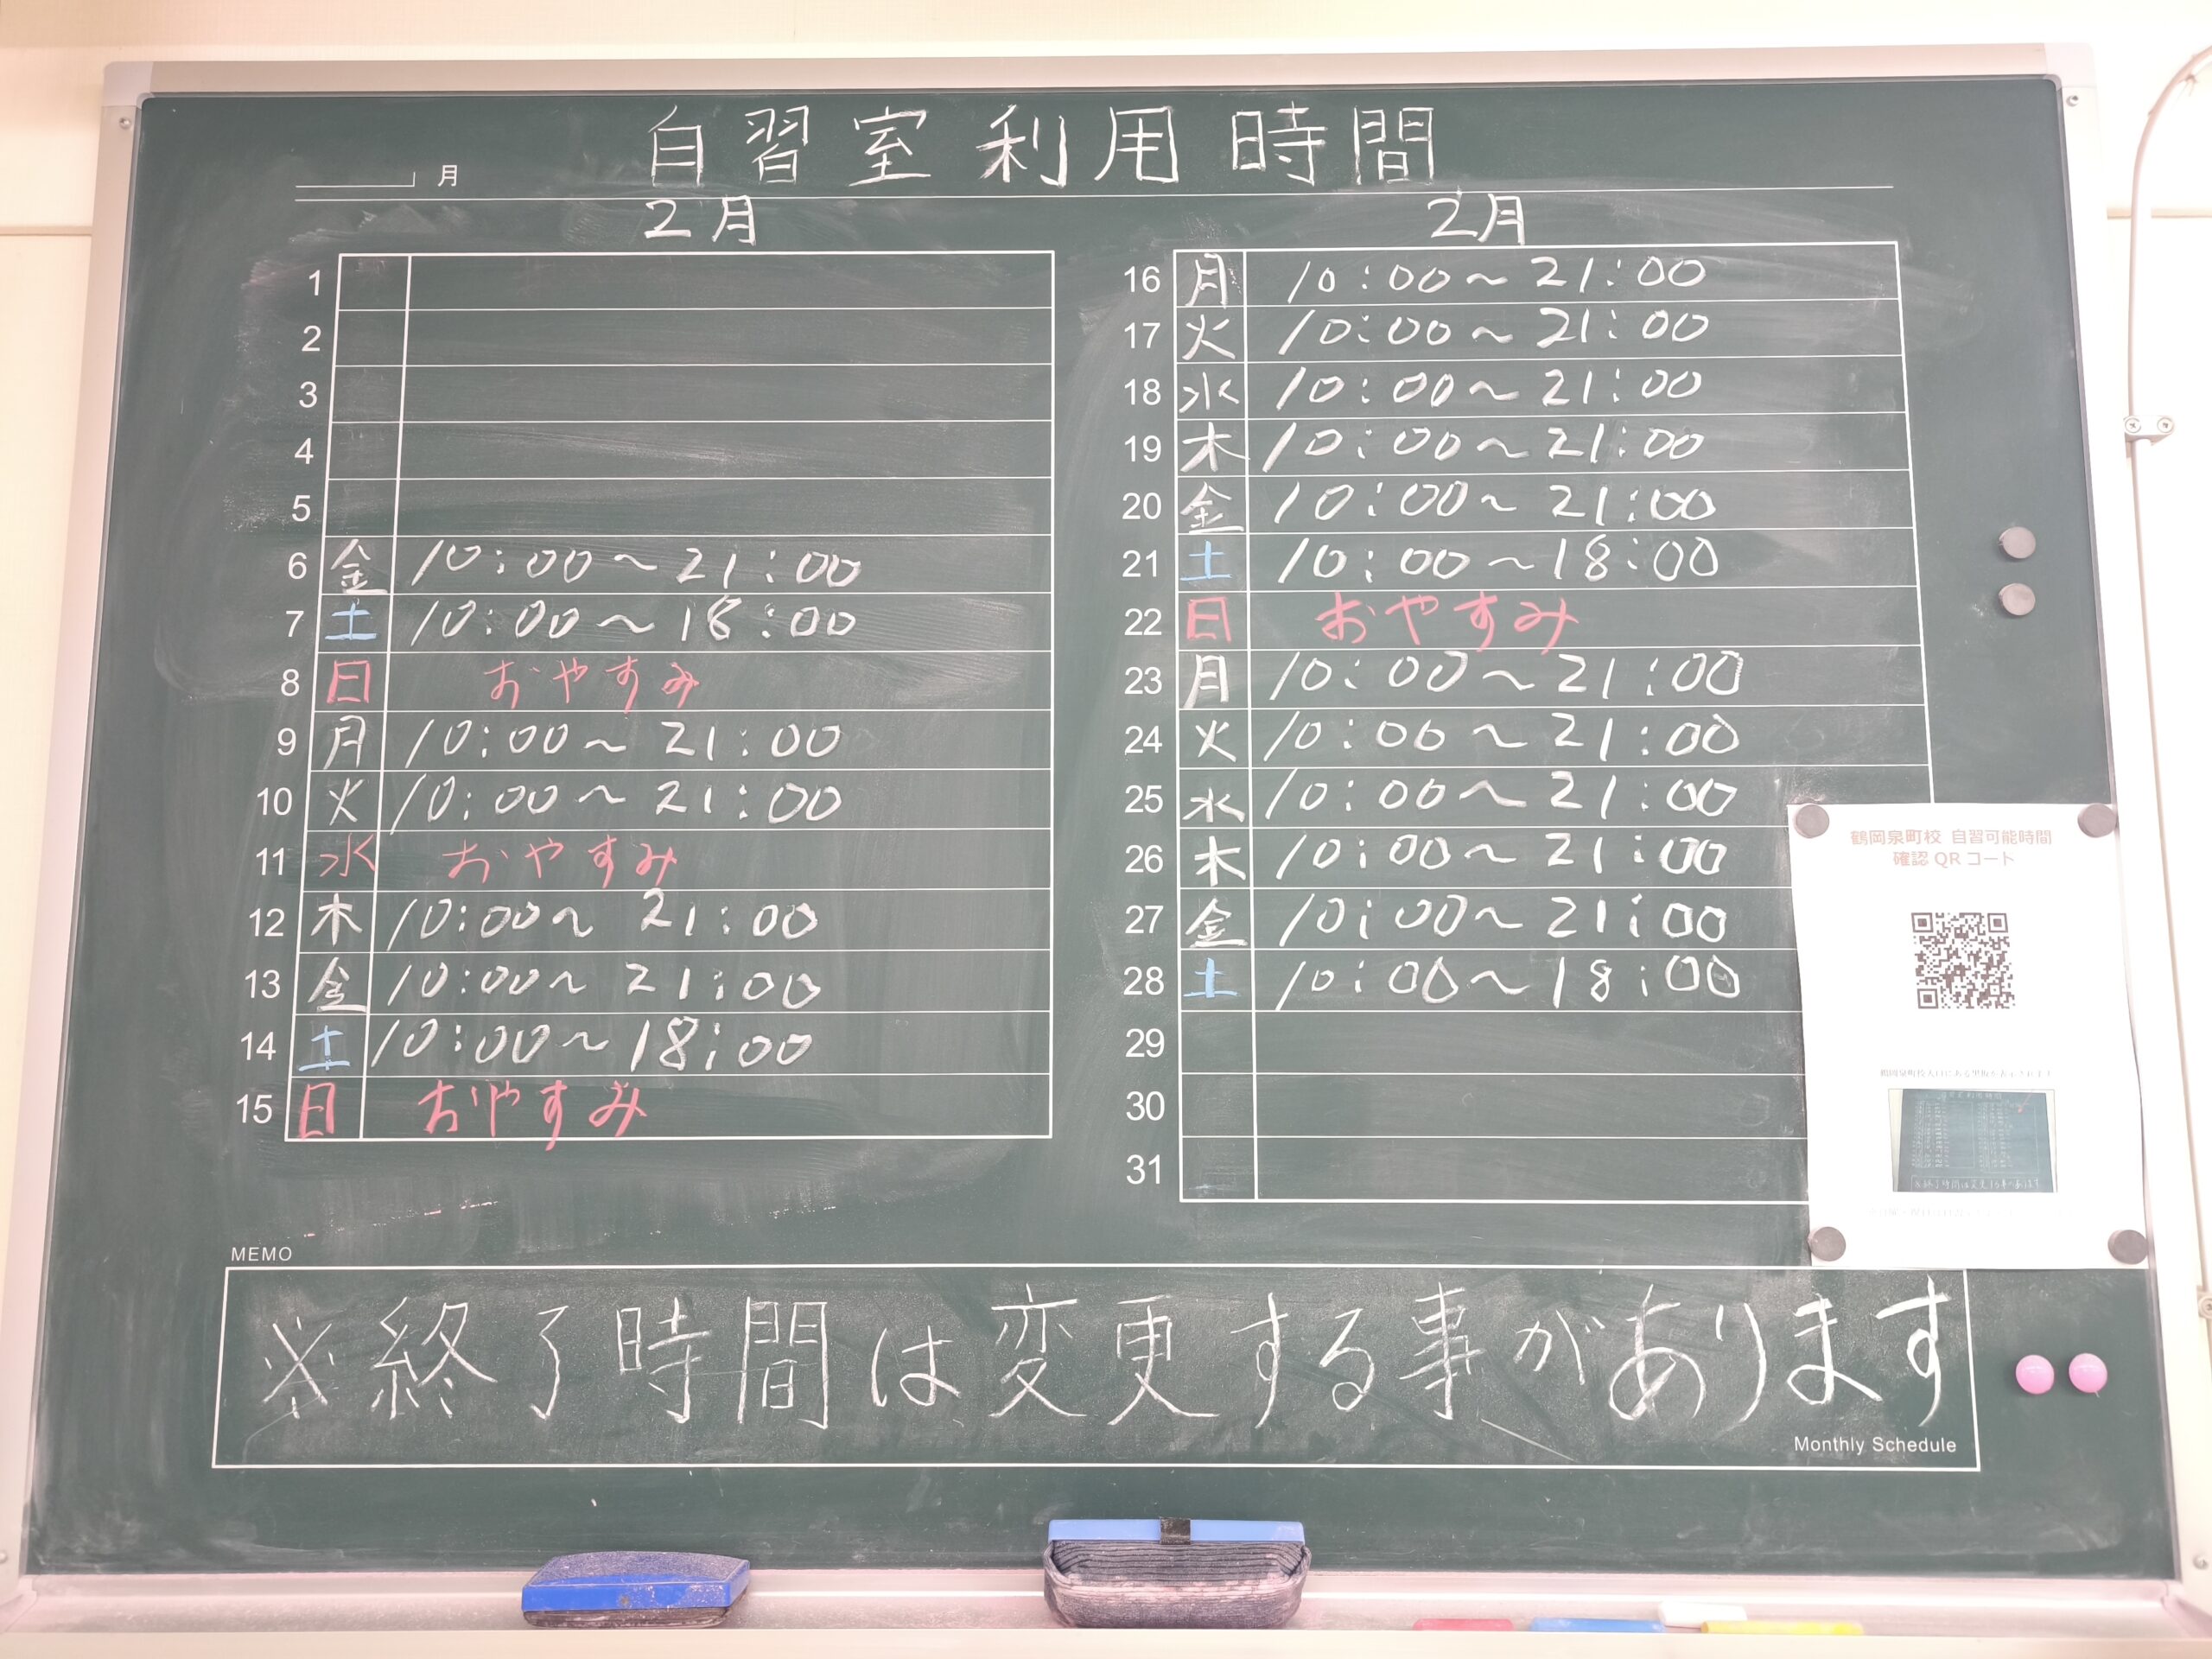 自習室利用時間
月
2月
1
2
3
4
5
6 金 10:00～21:00
7 土 10:00～18:00
8 日 おやすみ
9 月 10:00～21:00
10 火 10:00～21:00
11 水 おやすみ
12 木 10:00～21:00
13 金 10:00～21:00
14 土 10:00～18:00
15 日 おやすみ
2月
16 月 10:00～21:00
17 火 10:00～21:00
18 水 10:00～21:00
19 木 10:00～21:00
20 金 10:00～21:00
21 土 10:00～18:00
22 日 おやすみ
23 月 10:00～21:00
24 火 10:00～21:00
25 水 10:00～21:00
26 木 10:00～21:00
27 金 10:00～21:00
28 土 10:00～18:00
29
30
31
鶴岡泉町校 自習可能時間
確認QRコード
MEMO
※終了時間は変更する事があります
Monthly Schedule